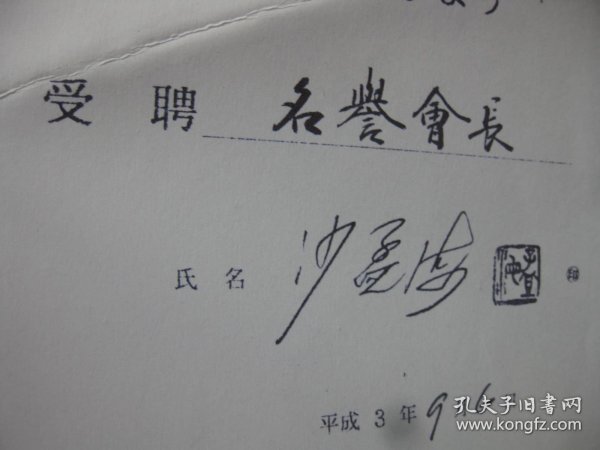 受聘 名譽會長
氏名 沙孟海 ㊞
平成3年9月6日
孔夫子旧书网
www.kongfz.com